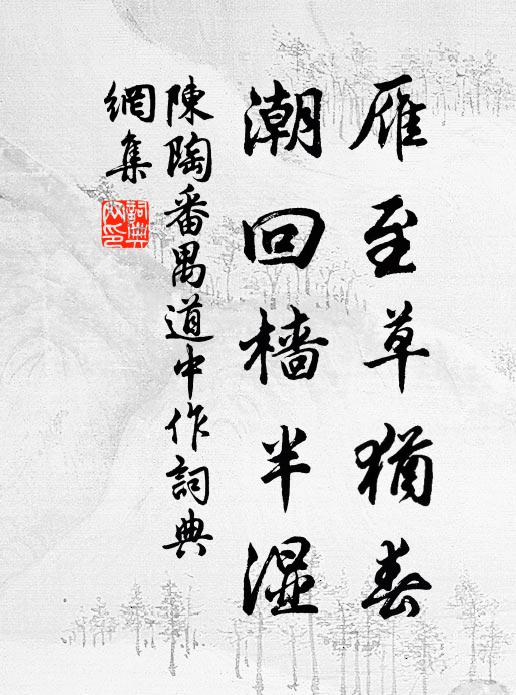 雁至草猶春
潮回檣半湿
陳陶番禺道中作詞典
網集
詞典網印